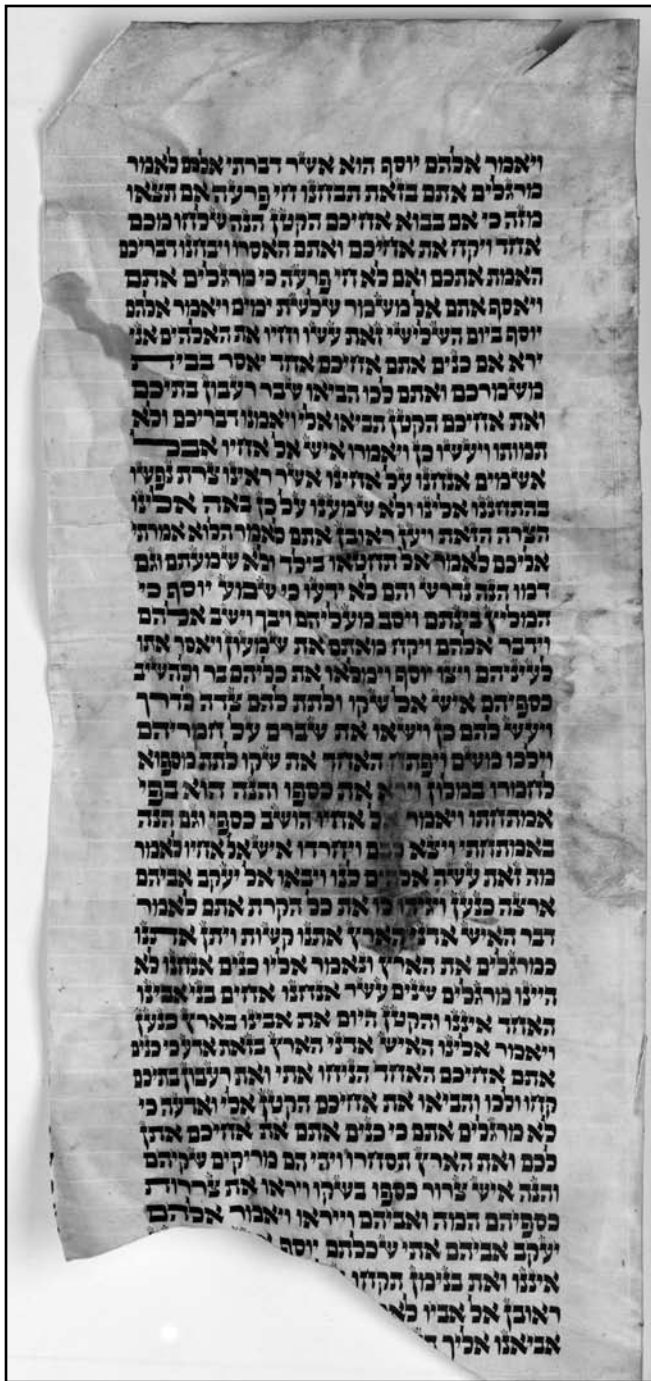 ויאמר אלהם יוסף הוא אשר דברתי אלכם לאמר
מרגלים אתם בזאת תבחנו חי פרעה אם תצאו
מזה כי אם בבוא אחיכם הקטן הנה שלחו מכם
אחד ויקח את אחיכם ואתם האסרו ויבחנו דבריכם
האמת אתכם ואם לא חי פרעה כי מרגלים אתם
ויאסף אתם אל משמר שלשת ימים ויאמר אלהם
יוסף ביום השלישי זאת עשו וחיו את האלהים אני
ירא אם כנים אתם אחיכם אחד יאסר בבית
משמרכם ואתם לכו הביאו שבר רעבון בתיכם
ואת אחיכם הקטן תביאו אלי ויאמנו דבריכם ולא
תמותו ויעשו כן ויאמרו איש אל אחיו אבל
אשמים אנחנו על אחינו אשר ראינו צרת נפשו
בהתחננו אלינו ולא שמענו על כן באה אלינו
הצרה הזאת ויען ראובן אתם לאמר הלוא אמרתי
אליכם לאמר אל תחטאו בילד ולא שמעתם וגם
דמו הנה נדרש והם לא ידעו כי שמע יוסף כי
המליץ בינתם ויסב מעליהם ויבך וישב אלהם
וידבר אלהם ויקח מאתם את שמעון ויאסר אתו
לעיניהם ויצו יוסף וימלאו את כליהם בר ולהשיב
כספיהם איש אל שקו ולתת להם צדה לדרך
ויעש להם כן וישאו את שברם על חמריהם
וילכו משם ויפתח האחד את שקו לתת מספוא
לחמרו במלון וירא את כספו והנה הוא בפי
אמתחתו ויאמר אל אחיו הושב כספי וגם הנה
באמתחתי ויצא לבם ויחרדו איש אל אחיו לאמר
מה זאת עשה אלהים לנו ויבאו אל יעקב אביהם
ארצה כנען ויגידו לו את כל הקרת אתם לאמר
דבר האיש אדני הארץ אתנו קשות ויתן אתנו
כמרגלים את הארץ ונאמר אליו כנים אנחנו לא
היינו מרגלים שנים עשר אנחנו אחים בני אבינו
האחד איננו והקטן היום את אבינו בארץ כנען
ויאמר אלינו האיש אדני הארץ בזאת אדע כי כנים
אתם אחיכם האחד הניחו אתי ואת רעבון בתיכם
קחו ולכו והביאו את אחיכם הקטן אלי ואדעה כי
לא מרגלים אתם כי כנים אתם את אחיכם אתן
לכם ואת הארץ תסחרו ויהי הם מריקים שקיהם
והנה איש צרור כספו בשקו ויראו את צררות
כספיהם המה ואביהם וייראו ויאמר אלהם
יעקב אביהם אתי שכלתם יוסף
איננו ואת בנימן תקחו
ראובן אל אביו
אביאנו אליך